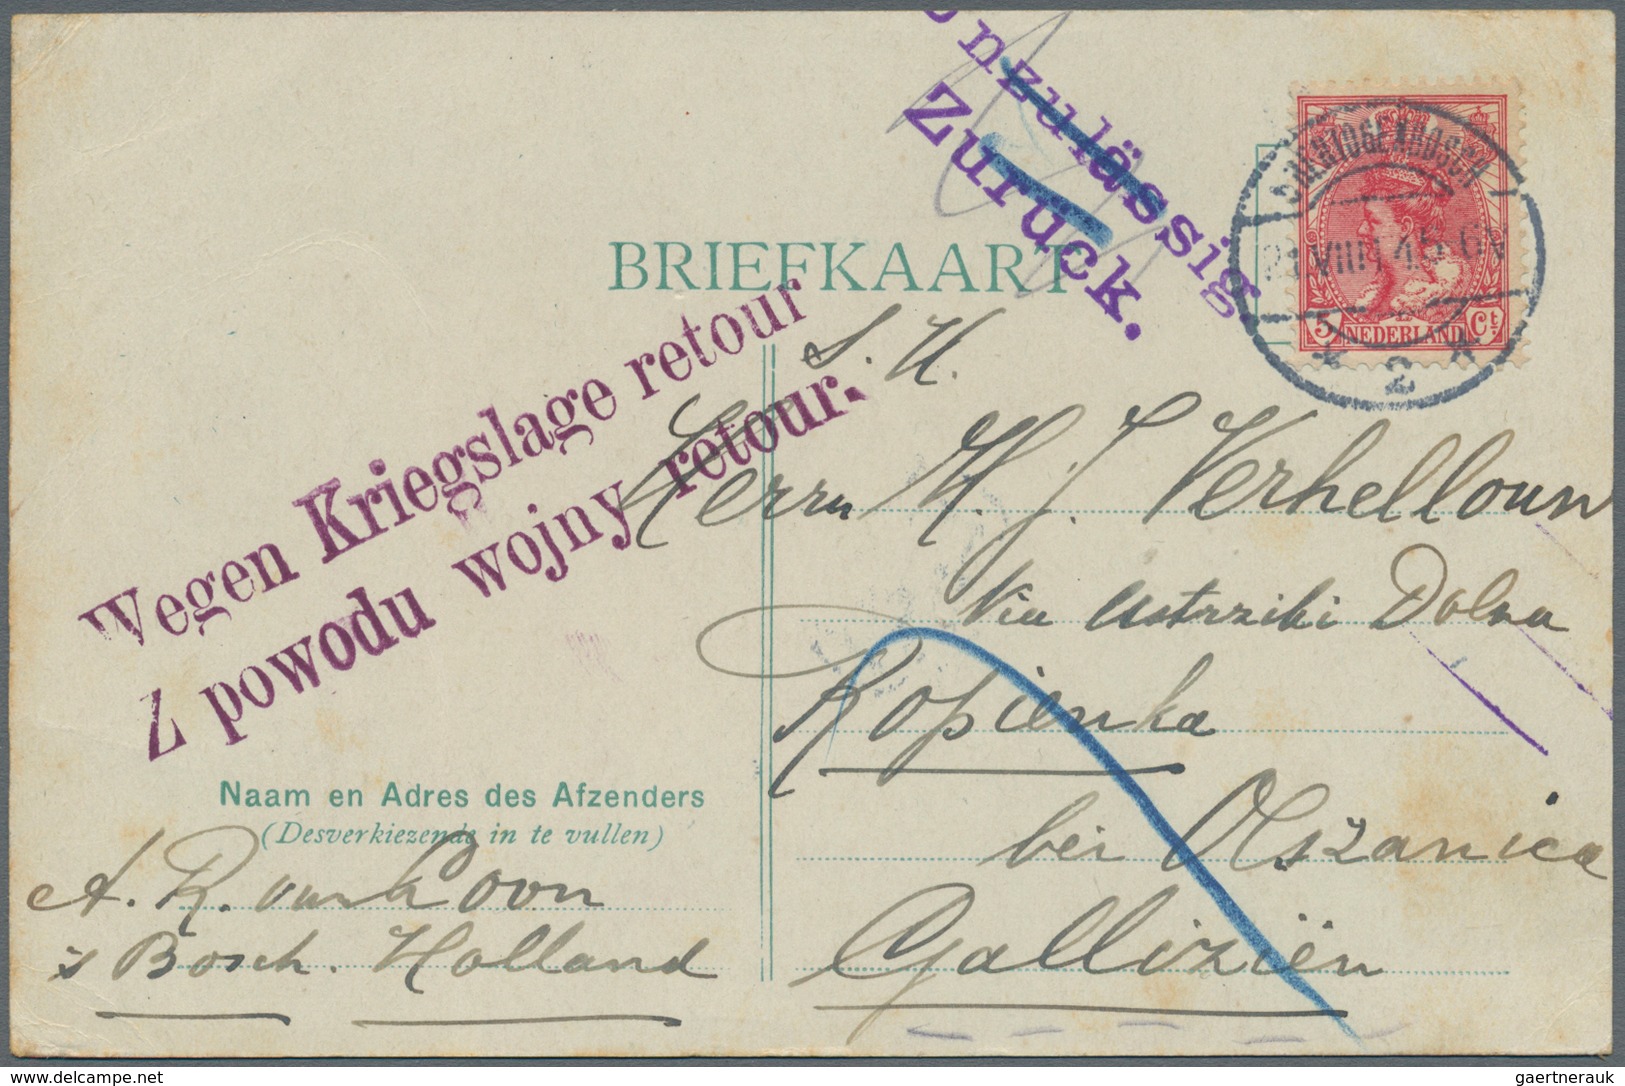 onzulässig.
Zurück.
BRIEFKAART
'SHERTOGENBOSCH
21.VIII.14.5-6N
2
5 NEDERLAND Ct
Wegen Kriegslage retour
Z powodu wojny retour.
S. H.
Herrn H. J. Verhelloun
Via Ustrziki Dolna
Ropienka
bei Olszanica
Galliziën
Naam en Adres des Afzenders
(Desverkiezende in te vullen)
A. R. van Loon
's Bosch. Holland
www.delcampe.net
gaertnerauk